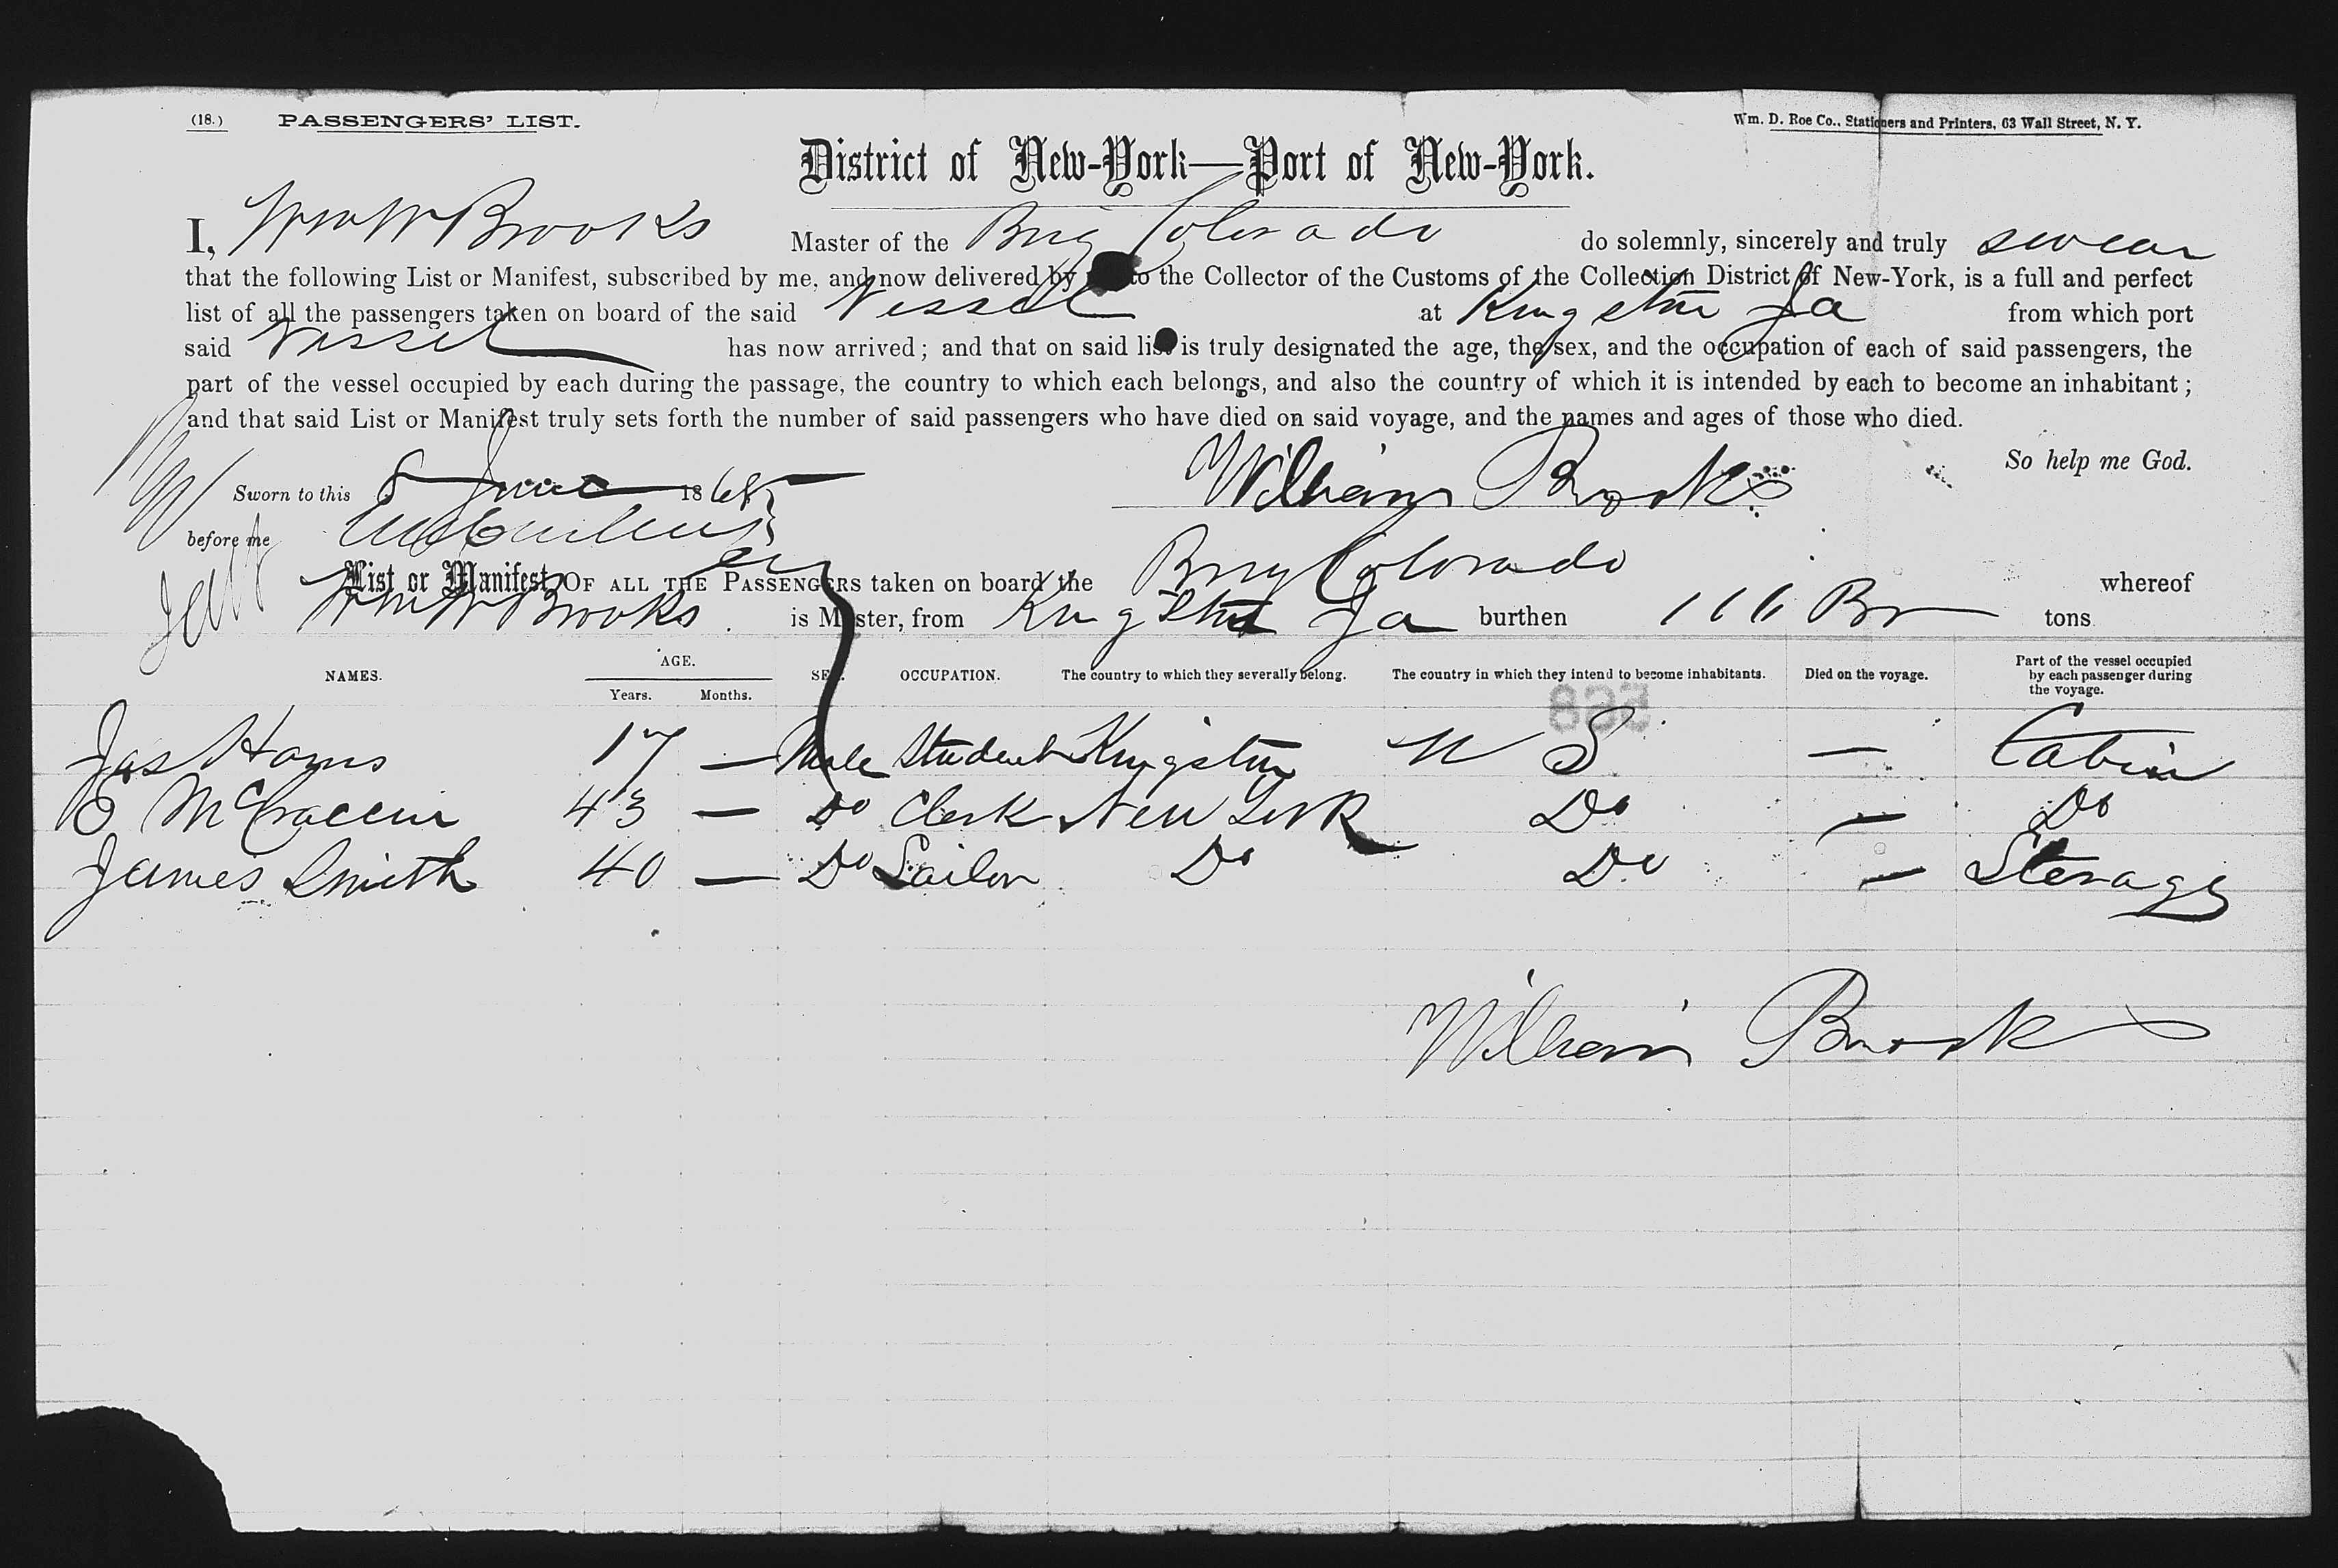 (18.) PASSENGERS' LIST. Wm. D. Roe Co., Stationers and Printers, 63 Wall Street, N. Y.
District of New-York—Port of New-York.
I, Wm W Brooks Master of the Brig Colorado do solemnly, sincerely and truly swear
that the following List or Manifest, subscribed by me, and now delivered by to the Collector of the Customs of the Collection District of New-York, is a full and perfect
list of all the passengers taken on board of the said Vessel at Kingston Ja from which port
said Vessel has now arrived; and that on said list is truly designated the age, the sex, and the occupation of each of said passengers, the
part of the vessel occupied by each during the passage, the country to which each belongs, and also the country of which it is intended by each to become an inhabitant;
and that said List or Manifest truly sets forth the number of said passengers who have died on said voyage, and the names and ages of those who died.
So help me God.
Sworn to this 8 June 18 William Brooks
before me
List or Manifest OF ALL THE PASSENGERS taken on board the Brig Colorado whereof
Wm W Brooks is Master, from Kingston Ja burthen 166 Br tons
NAMES. AGE. Years. Months. SEX. OCCUPATION. The country to which they severally belong. The country in which they intend to become inhabitants. Died on the voyage. Part of the vessel occupied by each passenger during the voyage.
Jas 17 — Male Student Kingston U S — Cabin
E McCraccin 43 — Do Clerk New York Do — Do
James Smith 40 — Do Sailor Do Do — Sterage
William Brooks